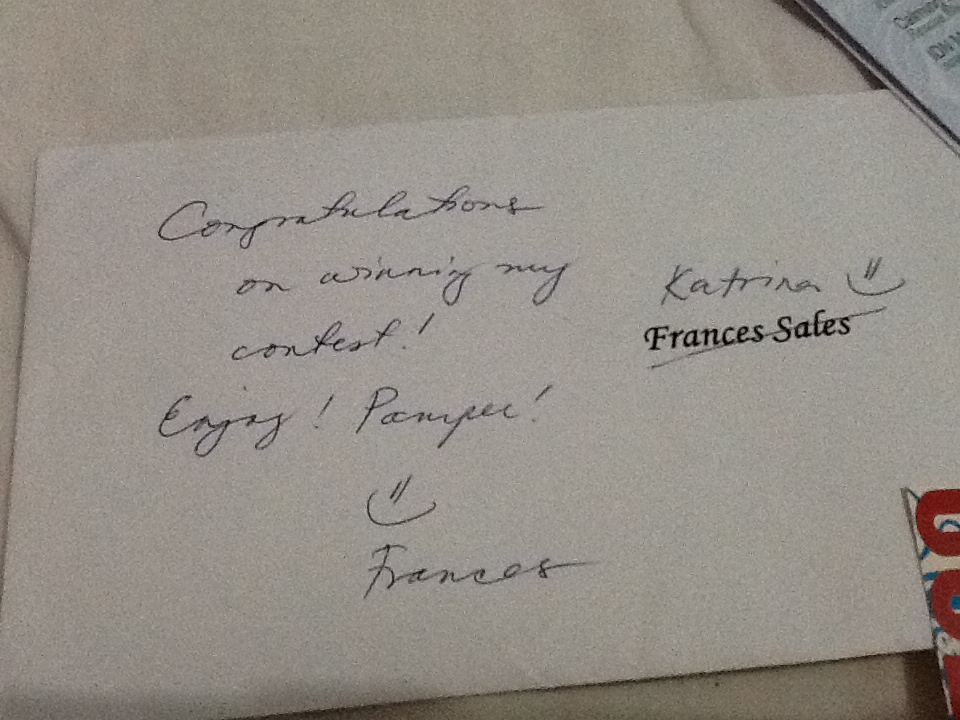 Congratulations
on winning my
contest!
Enjoy! Pamper!
Frances
Katrina
Frances Sales